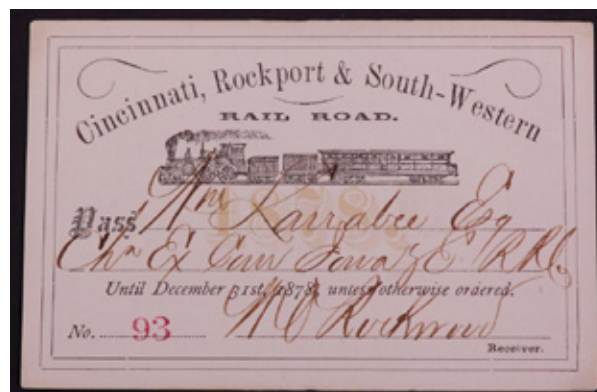 Cincinnati, Rockport & South-Western
RAIL ROAD.
1878.
Pass Wm Larrabee Esq
Chn Ex Com Iowa E RR Co
Until December 31st, 1878, unless otherwise ordered.
No. 93
Receiver.